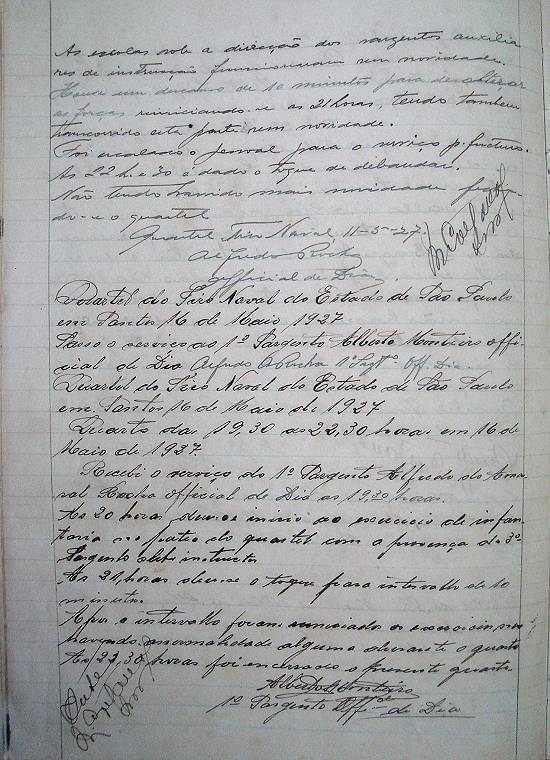 As escolas sob a direcção dos sargentos auxilia
res de instrucção funccionaram sem novidade.
Houve um descanso de 10 minutos para descançar
as forças reiniciando-se as 21 horas, tendo tambem
transcorrido esta parte sem novidade.
Foi escalado o pessoal para o serviço p. futuro.
As 22 h. e 30 é dado o toque de debandar.
Não tendo havido mais novidade
do-se o quartel
Quartel Tiro Naval, 11-5-27.
Alfredo Rocha
official de Dia.
Quartel do Tiro Naval do Estado de São Paulo
em Santos 16 de Maio 1927
Passo o serviço ao 1º Sargento Alberto Monteiro offi-
cial de Dia Alfredo A Rocha 1º Sgtº Off. Dia.
Quartel do Tiro Naval do Estado de São Paulo
em Santos 16 de Maio de 1927
Quarto das 19,30 as 22,30 horas em 16 de
Maio de 1927.
Recebi o serviço do 1º Sargento Alfredo do Ama-
ral Rocha official de Dia as 19,30 horas.
As 20 horas deu-se inicio ao exercicio de infan
taria no pateo do quartel com a presença do 3º
Sargento instructor
As 21, horas deu-se o toque para intervallo de 10
minutos.
Apos o intervallo foram reiniciados os exercicios, não
havendo anormalidade alguma durante o quarto
As 22,30 horas foi encerrado o presente quarto
Alberto Monteiro
1º Sargento Offi-al de Dia